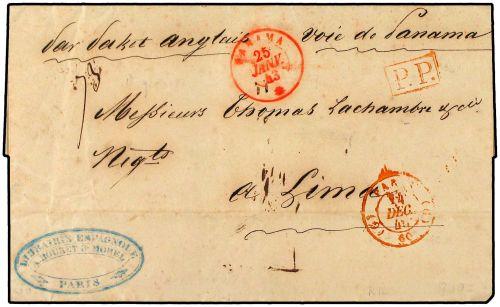 par Paket anglais Voie de Panama
PANAMA
25
JANV.
P.P.
Messieurs Thomas Lachambre & Co
Negts
a Lima
14
DEC.
60
(60)
LIBRAIRIE ESPAGNOLE
PARIS